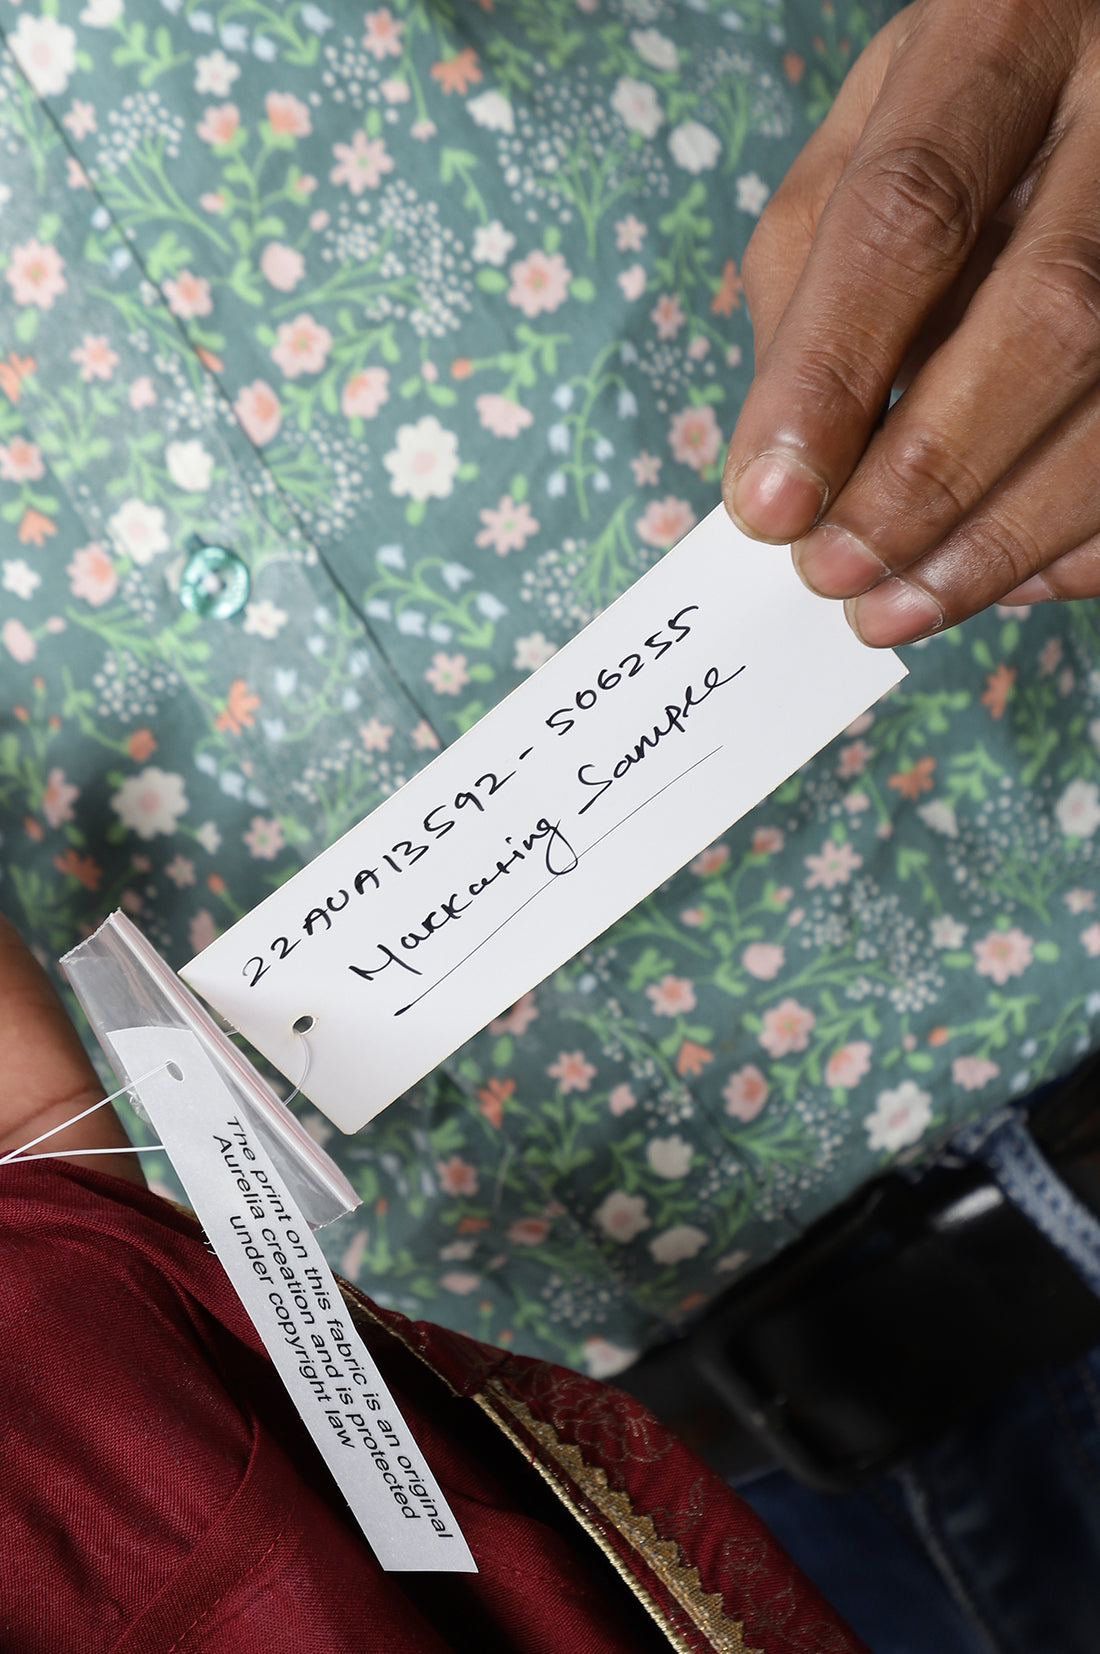 22AUA13592-506255
Markating Sample
The print on this fabric is an original
Aurelia creation and is protected
under copyright law